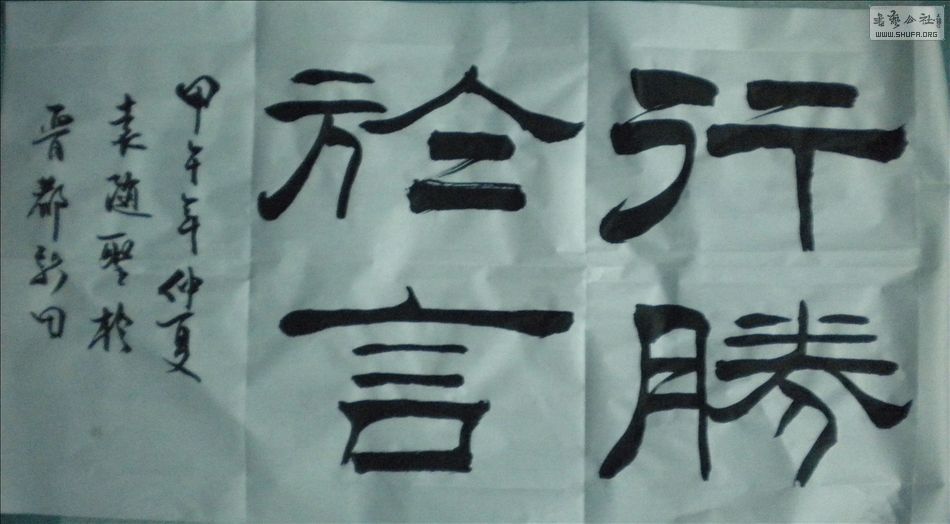 行勝
於言
甲午年仲夏
袁随聖於
晋都新田
書藝公社
WWW.SHUFA.ORG